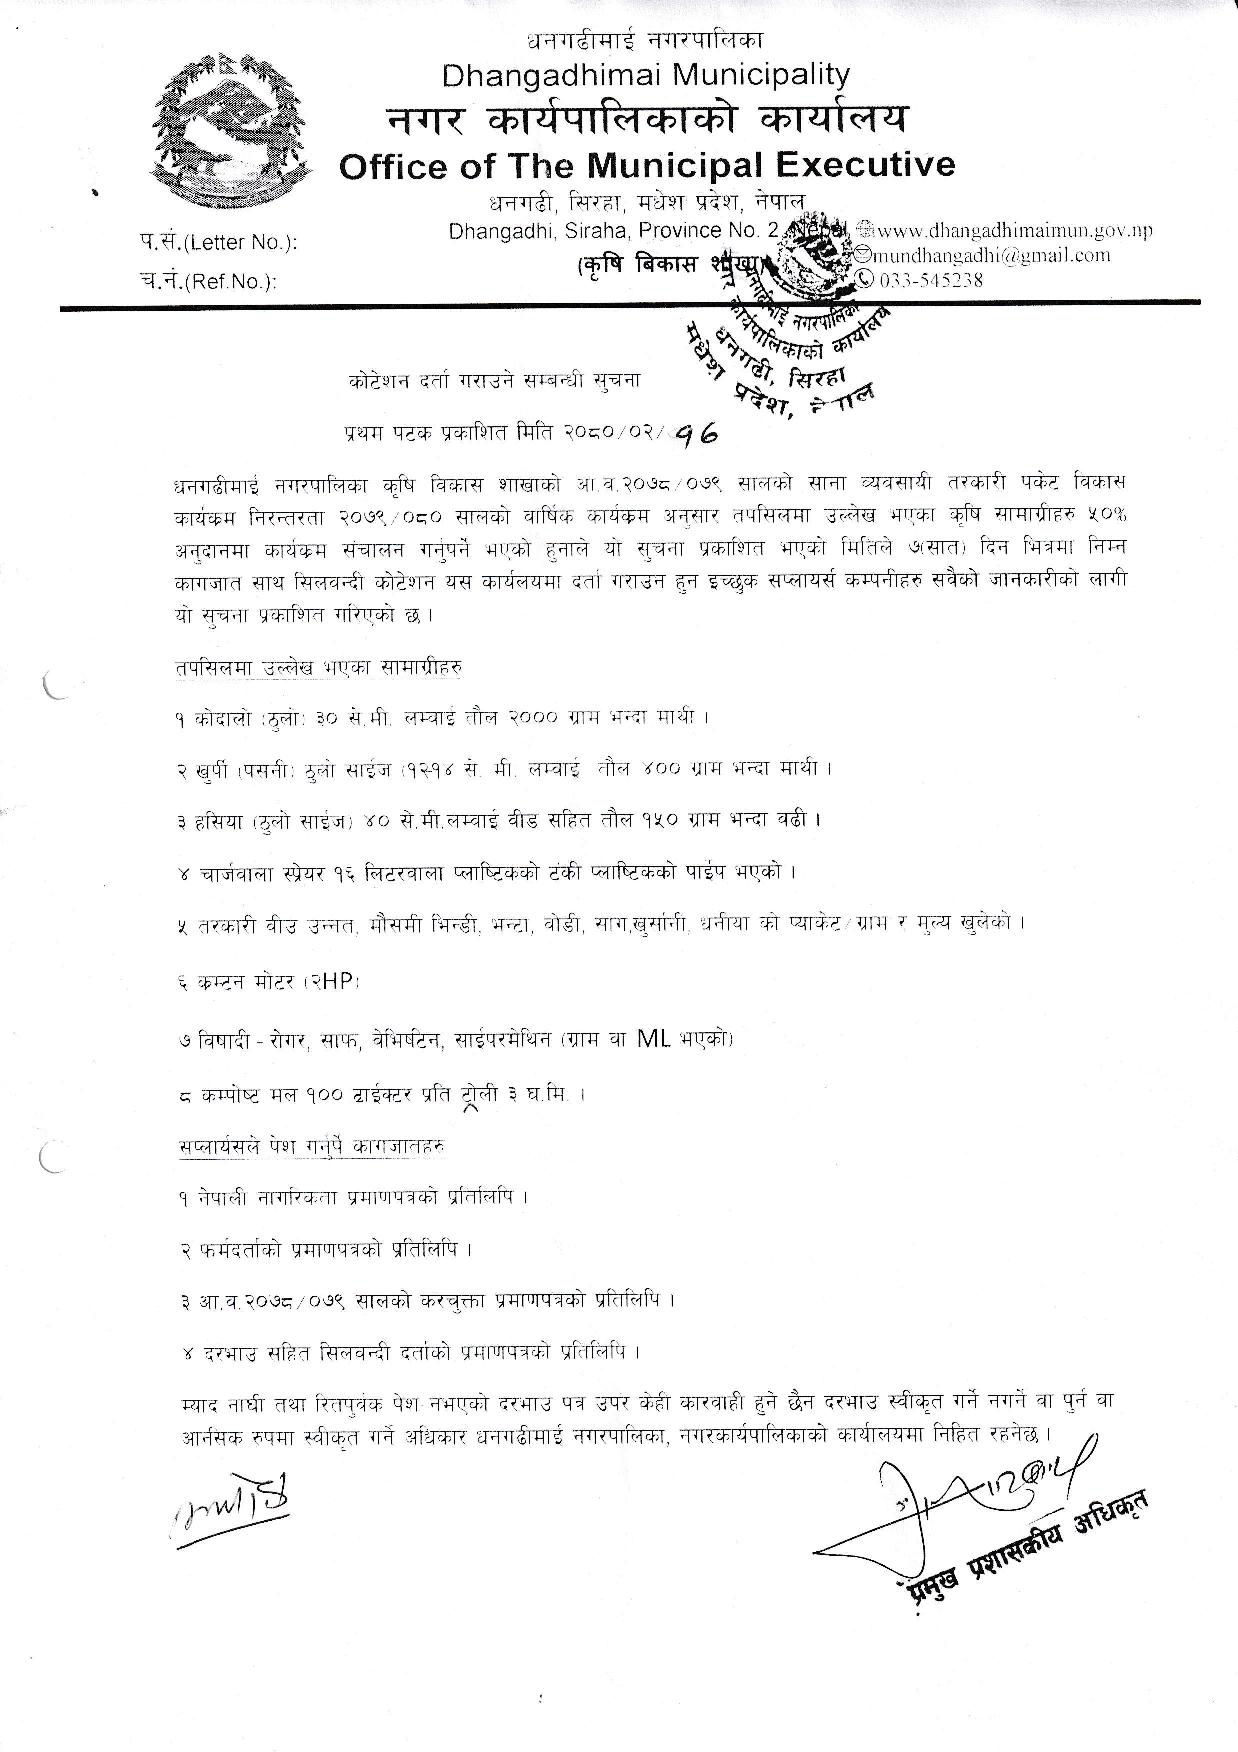 धनगढीमाई नगरपालिका
Dhangadhimai Municipality
नगर कार्यपालिकाको कार्यालय
Office of The Municipal Executive
धनगढी, सिरहा, मधेश प्रदेश, नेपाल
प.सं.(Letter No.):
Dhangadhi, Siraha, Province No. 2, Nepal
www.dhangadhimaimun.gov.np
(कृषि विकास शाखा)
mundhangadhi@gmail.com
च.नं.(Ref.No.):
033-545238
धनगढीमाई नगरपालिका
नगर कार्यपालिकाको कार्यालय
धनगढी, सिरहा
मधेश प्रदेश, नेपाल
कोटेशन दर्ता गराउने सम्बन्धी सुचना
प्रथम पटक प्रकाशित मिति २०८०/०२/१६
धनगढीमाई नगरपालिका कृषि विकास शाखाको आ.व.२०७८/०७९ सालको साना व्यवसायी तरकारी पकेट विकास
कार्यकम निरन्तरता २०७९/०८० सालको वार्षिक कार्यकम अनुसार तपसिलमा उल्लेख भएका कृषि सामाग्रीहरु ५०%
अनुदानमा कार्यकम संचालन गर्नुपर्ने भएको हुनाले यो सुचना प्रकाशित भएको मितिले ७(सात) दिन भित्रमा निम्न
कागजात साथ सिलवन्दी कोटेशन यस कार्यलयमा दर्ता गराउन हुन इच्छुक सप्लायर्स कम्पनीहरु सवैको जानकारीको लागी
यो सुचना प्रकाशित गरिएको छ ।
तपसिलमा उल्लेख भएका सामाग्रीहरु
१ कोदालो (ठुलो) ३० से.मी. लम्वाई तौल २००० ग्राम भन्दा माथी ।
२ खुर्पी (पसनी) ठुलो साईज (१२-१४ से. मी. लम्वाई तौल ४०० ग्राम भन्दा माथी ।
३ हसिया (ठुलो साईज) ४० से.मी.लम्वाई वीड सहित तौल १५० ग्राम भन्दा वढी ।
४ चार्जवाला स्प्रेयर १६ लिटरवाला प्लाष्टिकको टंकी प्लाष्टिकको पाईप भएको ।
५ तरकारी वीउ उन्नत, मौसमी भिन्डी, भन्टा, वोडी, साग,खुर्सानी, धनीया को प्याकेट/ग्राम र मुल्य खुलेको ।
६ कम्टन मोटर (२HP)
७ विषादी - रोगर, साफ, वेभिष्टिन, साईपरमेथिन (ग्राम वा ML भएको)
८ कम्पोष्ट मल १०० टाईक्टर प्रति ट्रोली ३ घ.मि. ।
सप्लार्यसले पेश गर्नुपर्ने कागजातहरु
१ नेपाली नागरिकता प्रमाणपत्रको प्रतिलिपि ।
२ फर्मदर्ताको प्रमाणपत्रको प्रतिलिपि ।
३ आ.व.२०७८/०७९ सालको करचुक्ता प्रमाणपत्रको प्रतिलिपि ।
४ दरभाउ सहित सिलवन्दी दर्ताको प्रमाणपत्रको प्रतिलिपि ।
म्याद नाघी तथा रितपुर्वक पेश नभएको दरभाउ पत्र उपर केही कारवाही हुने छैन दरभाउ स्वीकृत गर्ने नगर्ने वा पुर्न वा
आर्नसक रुपमा स्वीकृत गर्ने अधिकार धनगढीमाई नगरपालिका, नगरकार्यपालिकाको कार्यालयमा निहित रहनेछ ।
प्रमुख प्रशासकीय अधिकृत